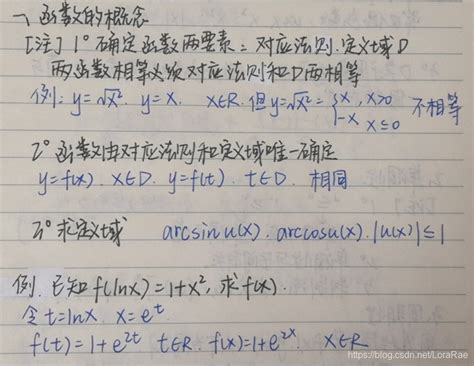 一、函数的概念
[注] 1° 确定函数两要素：对应法则.定义域D
两函数相等必须对应法则和D两相等
例：y=√x². y=x. x∈R.但y=√x²={x, x>0 不相等
-x x≤0
2° 函数由对应法则和定义域唯一确定
y=f(x). x∈D. y=f(t). t∈D. 相同
3° 求定义域 arcsinu(x). arccosu(x). |u(x)|≤1
例. 已知f(lnx)=1+x², 求f(x).
令t=lnx. x=eᵗ
f(t)=1+e²ᵗ t∈R. f(x)=1+e²ˣ x∈R
https://blog.csdn.net/LoraRae